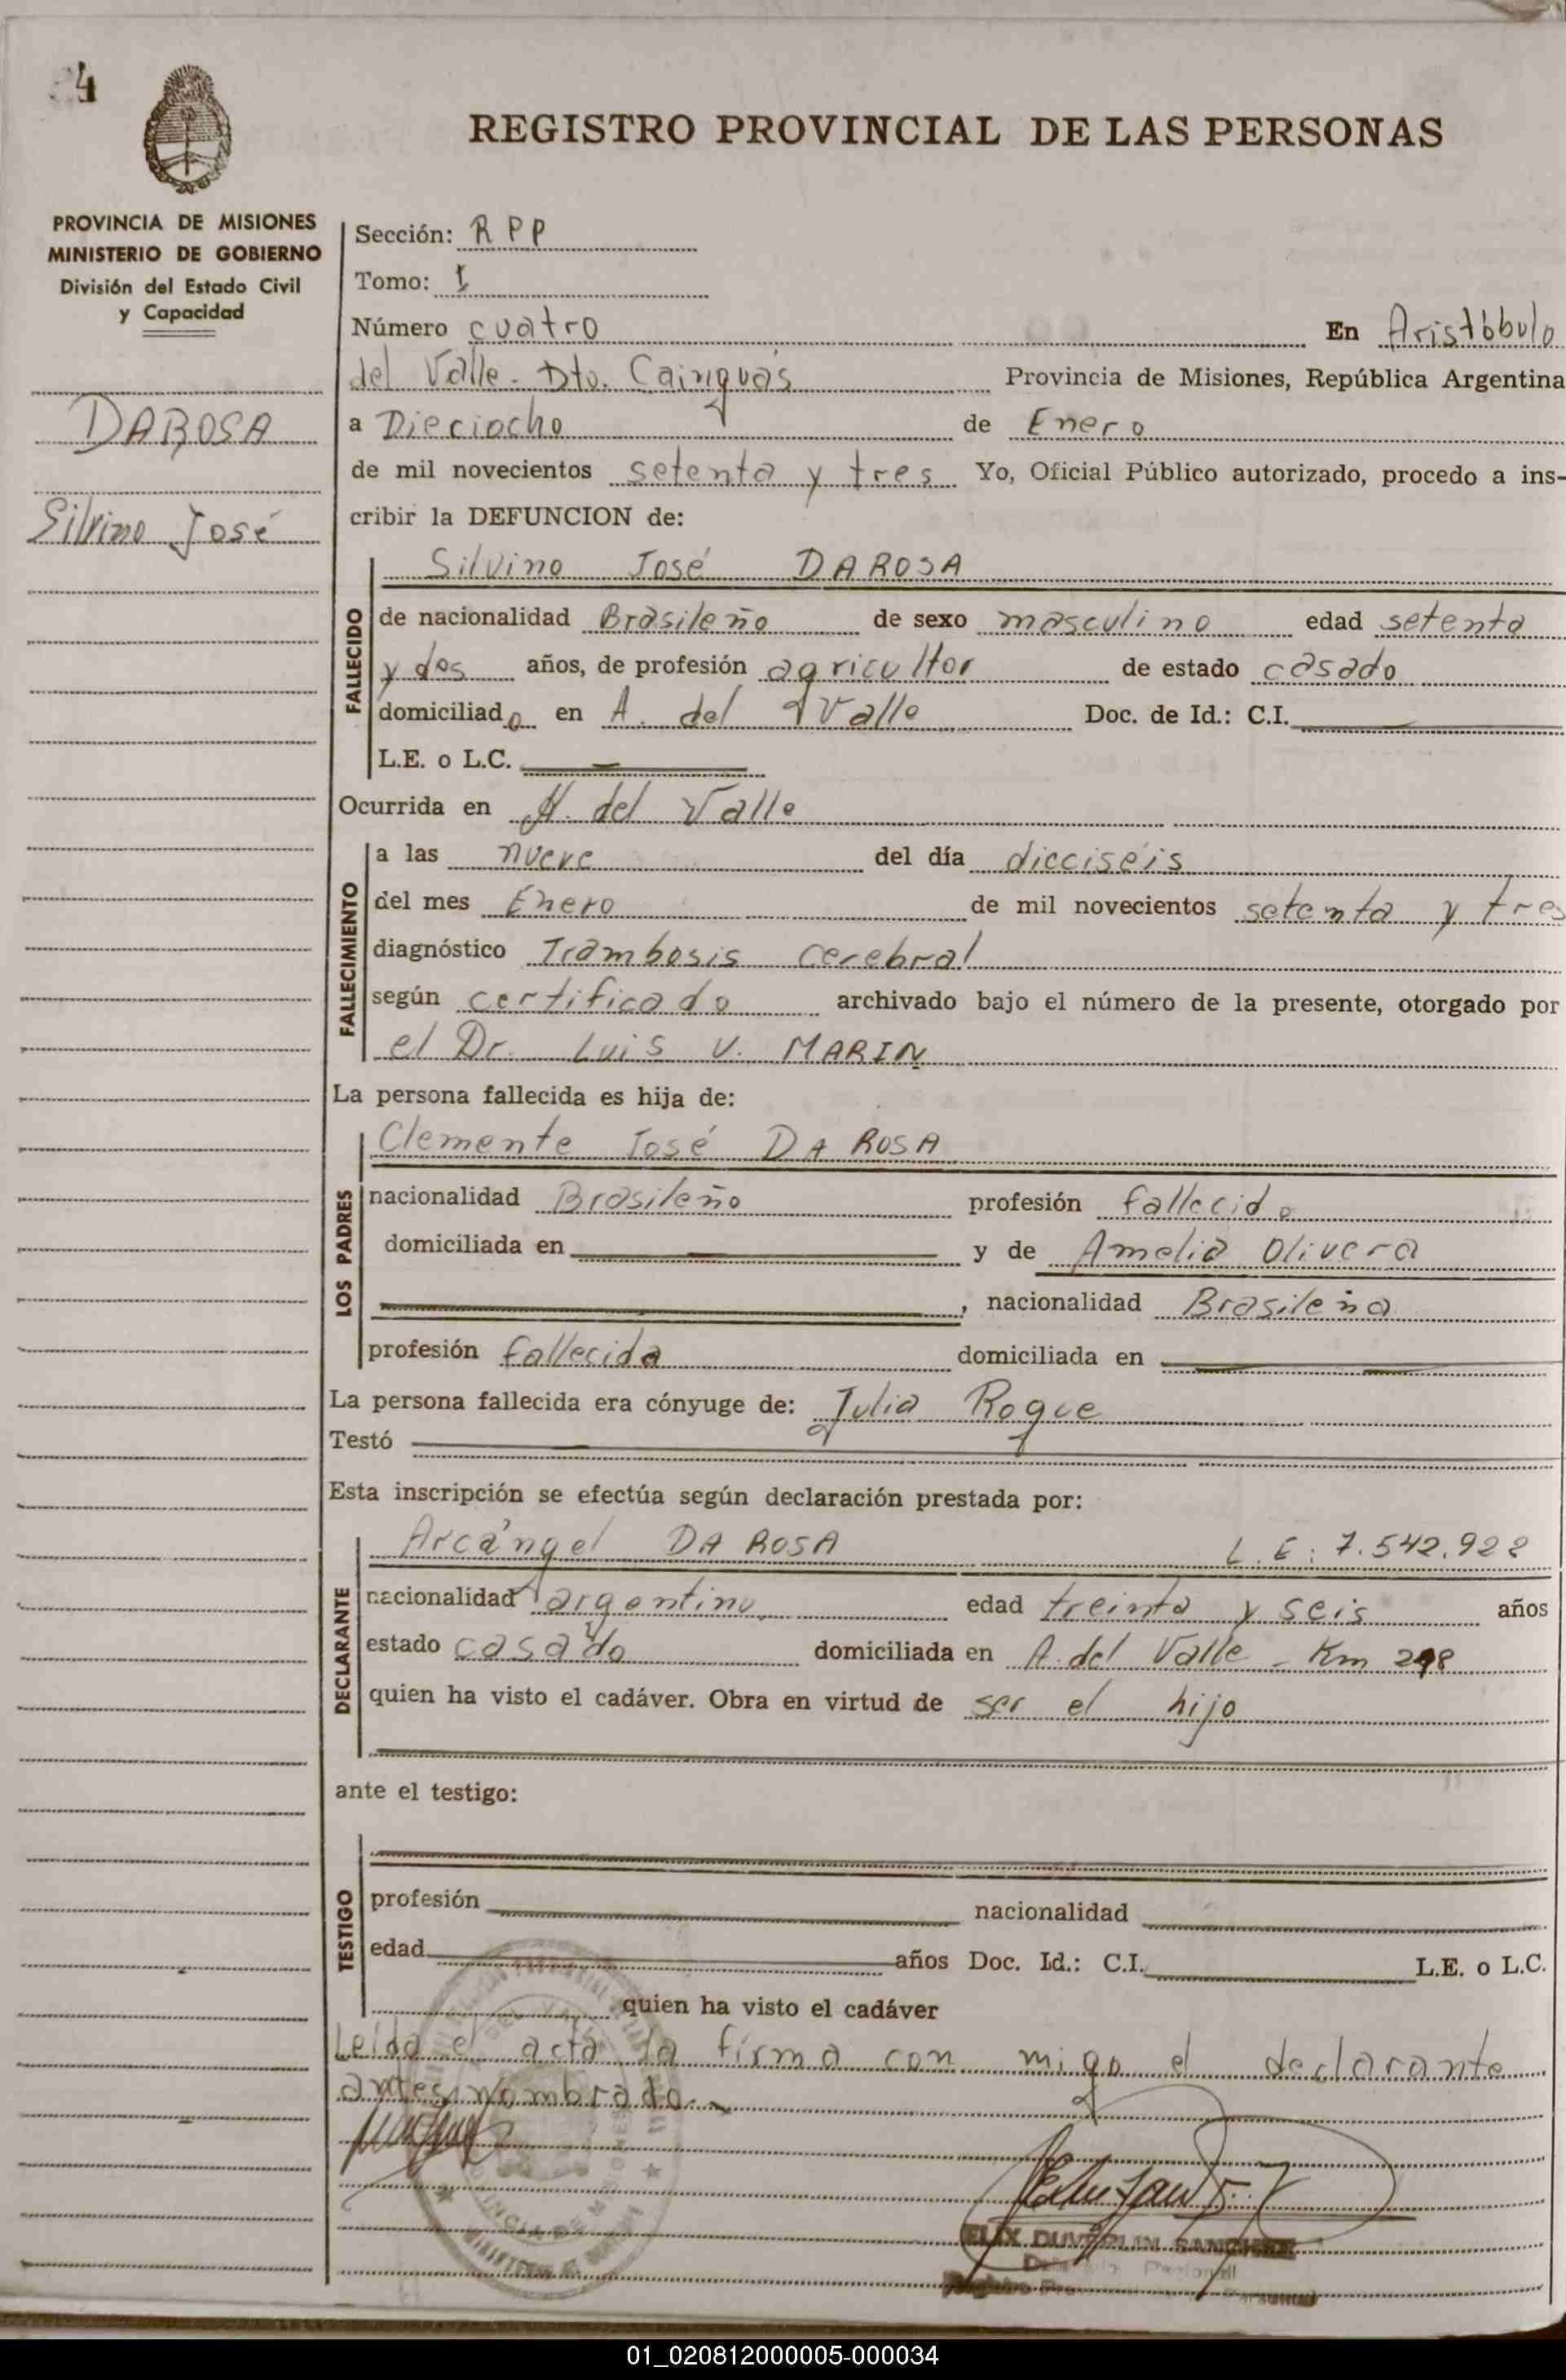 4
REGISTRO PROVINCIAL DE LAS PERSONAS
PROVINCIA DE MISIONES
MINISTERIO DE GOBIERNO
División del Estado Civil
y Capacidad
DAROSA
Silvino José
Sección: RPP
Tomo: I
Número cuatro En Aristóbulo
del Valle - Dto. Cainguás Provincia de Misiones, República Argentina
a Dieciocho de Enero
de mil novecientos setenta y tres Yo, Oficial Público autorizado, procedo a ins-
cribir la DEFUNCION de:
FALLECIDO
Silvino José DAROSA
de nacionalidad Brasileño de sexo masculino edad setenta
y dos años, de profesión agricultor de estado casado
domiciliado en A. del Valle Doc. de Id.: C.I.
L.E. o L.C.
Ocurrida en A. del Valle
FALLECIMIENTO
a las nueve del día dieciséis
del mes Enero de mil novecientos setenta y tres
diagnóstico Trambosis cerebral
según certificado archivado bajo el número de la presente, otorgado por
el Dr. Luis V. MARIN
La persona fallecida es hija de:
LOS PADRES
Clemente José DA ROSA
nacionalidad Brasileño profesión fallecido
domiciliada en y de Amelia Olivera
, nacionalidad Brasileña
profesión fallecida domiciliada en
La persona fallecida era cónyuge de: Julia Roque
Testó
Esta inscripción se efectúa según declaración prestada por:
DECLARANTE
Arcángel DA ROSA L.E: 7.542.928
nacionalidad argentino, edad treinta y seis años
estado casado domiciliada en A. del Valle - Km 298
quien ha visto el cadáver. Obra en virtud de ser el hijo
ante el testigo:
TESTIGO
profesión nacionalidad
edad años Doc. Id.: C.I. L.E. o L.C.
quien ha visto el cadáver
Leída el acta la firma con migo el declarante
antes nombrado.-
01_020812000005-000034